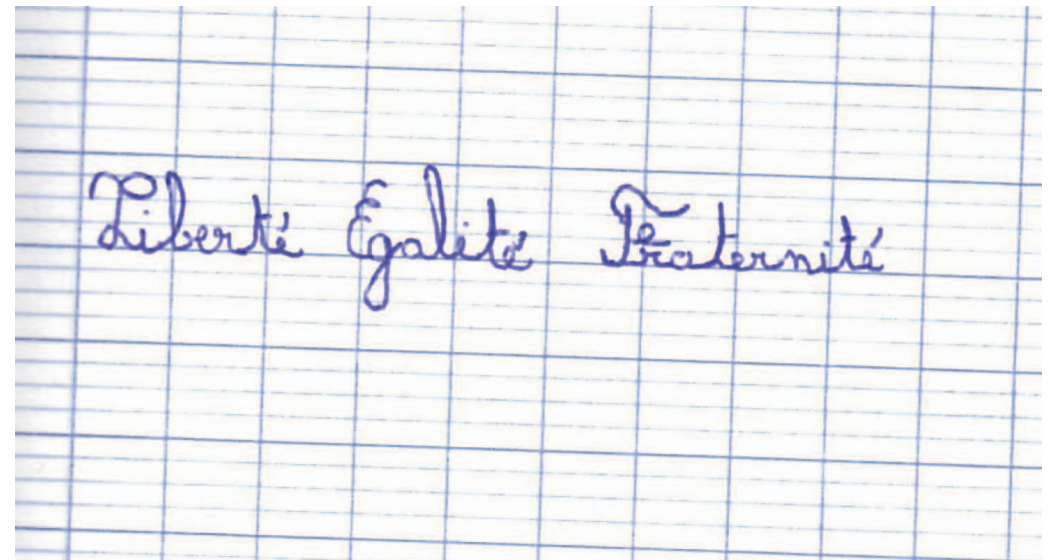 Liberté Égalité Fraternité